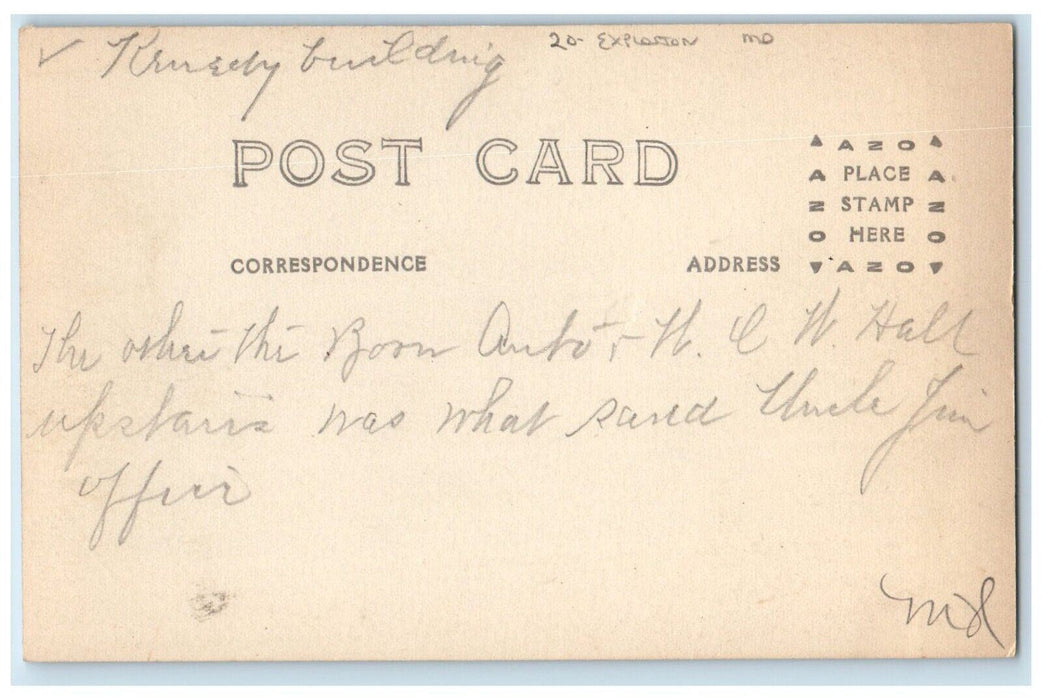 ✓ Kennedy building
20- EXPLOSION MO
POST CARD
AZO
A PLACE A
Z STAMP Z
O HERE O
AZO
CORRESPONDENCE
ADDRESS
The other the Born Auto + W. O. W. Hall
upstairs was what saved Uncle Jim
office